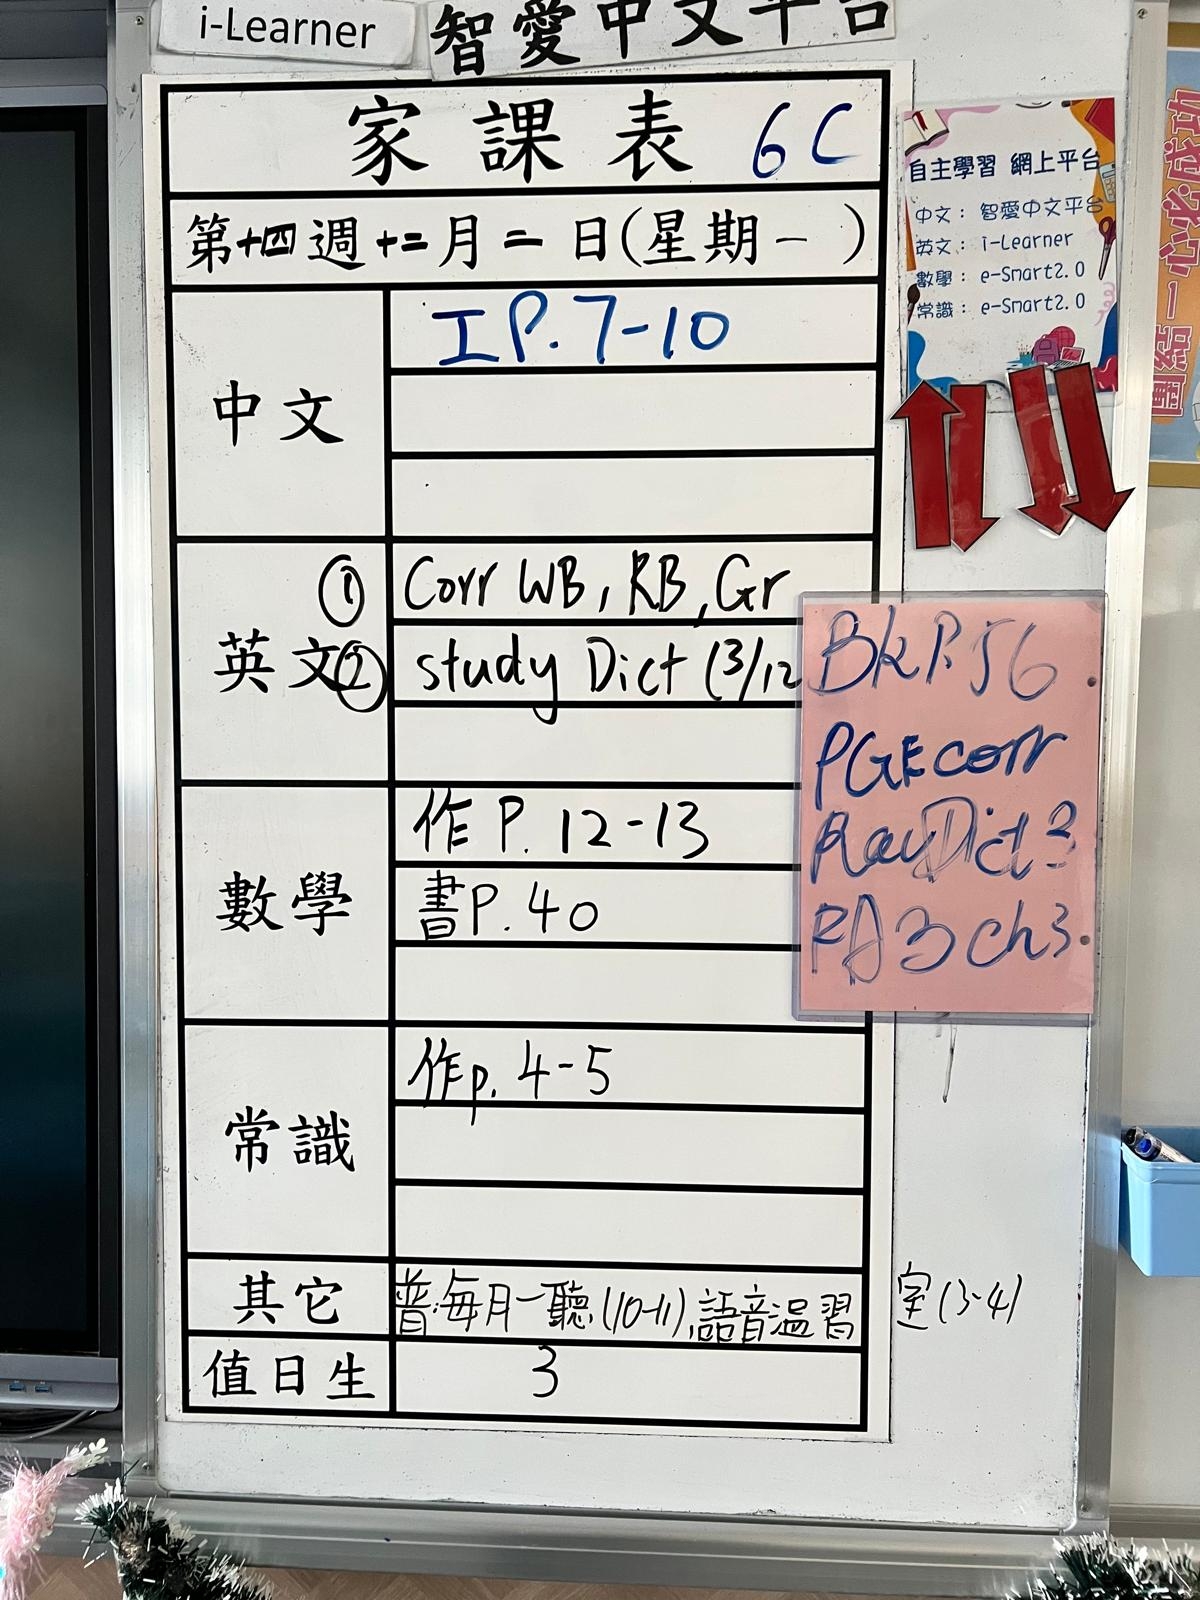 i-Learner
智愛中文平台
家課表 6C
第十四週十二月二日(星期一)
中文
I P.7-10
英文
① Corr WB, RB, Gr
② study Dict (3/12
數學
作 P. 12-13
書P.40
常識
作p. 4-5
其它
普:每月一聽(10-11),語音溫習室(3-4)
值日生
3
自主學習 網上平台
中文: 智愛中文平台
英文: i-Learner
數學: e-Smart2.0
常識: e-Smart2.0
BkP.56
PGEcorr
Dict 3
RA3 ch3
團結一心必成功